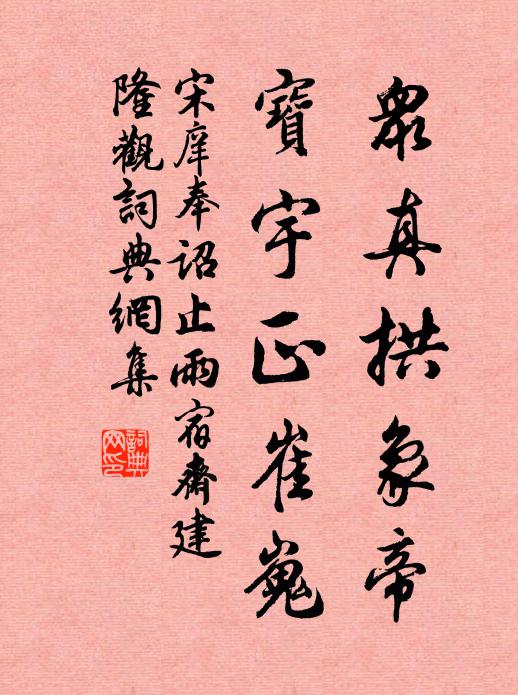 眾真拱象帝
寶宇正崔嵬
宋庠奉詔止雨宿齋建
隆觀詞典網集
詞典
网印